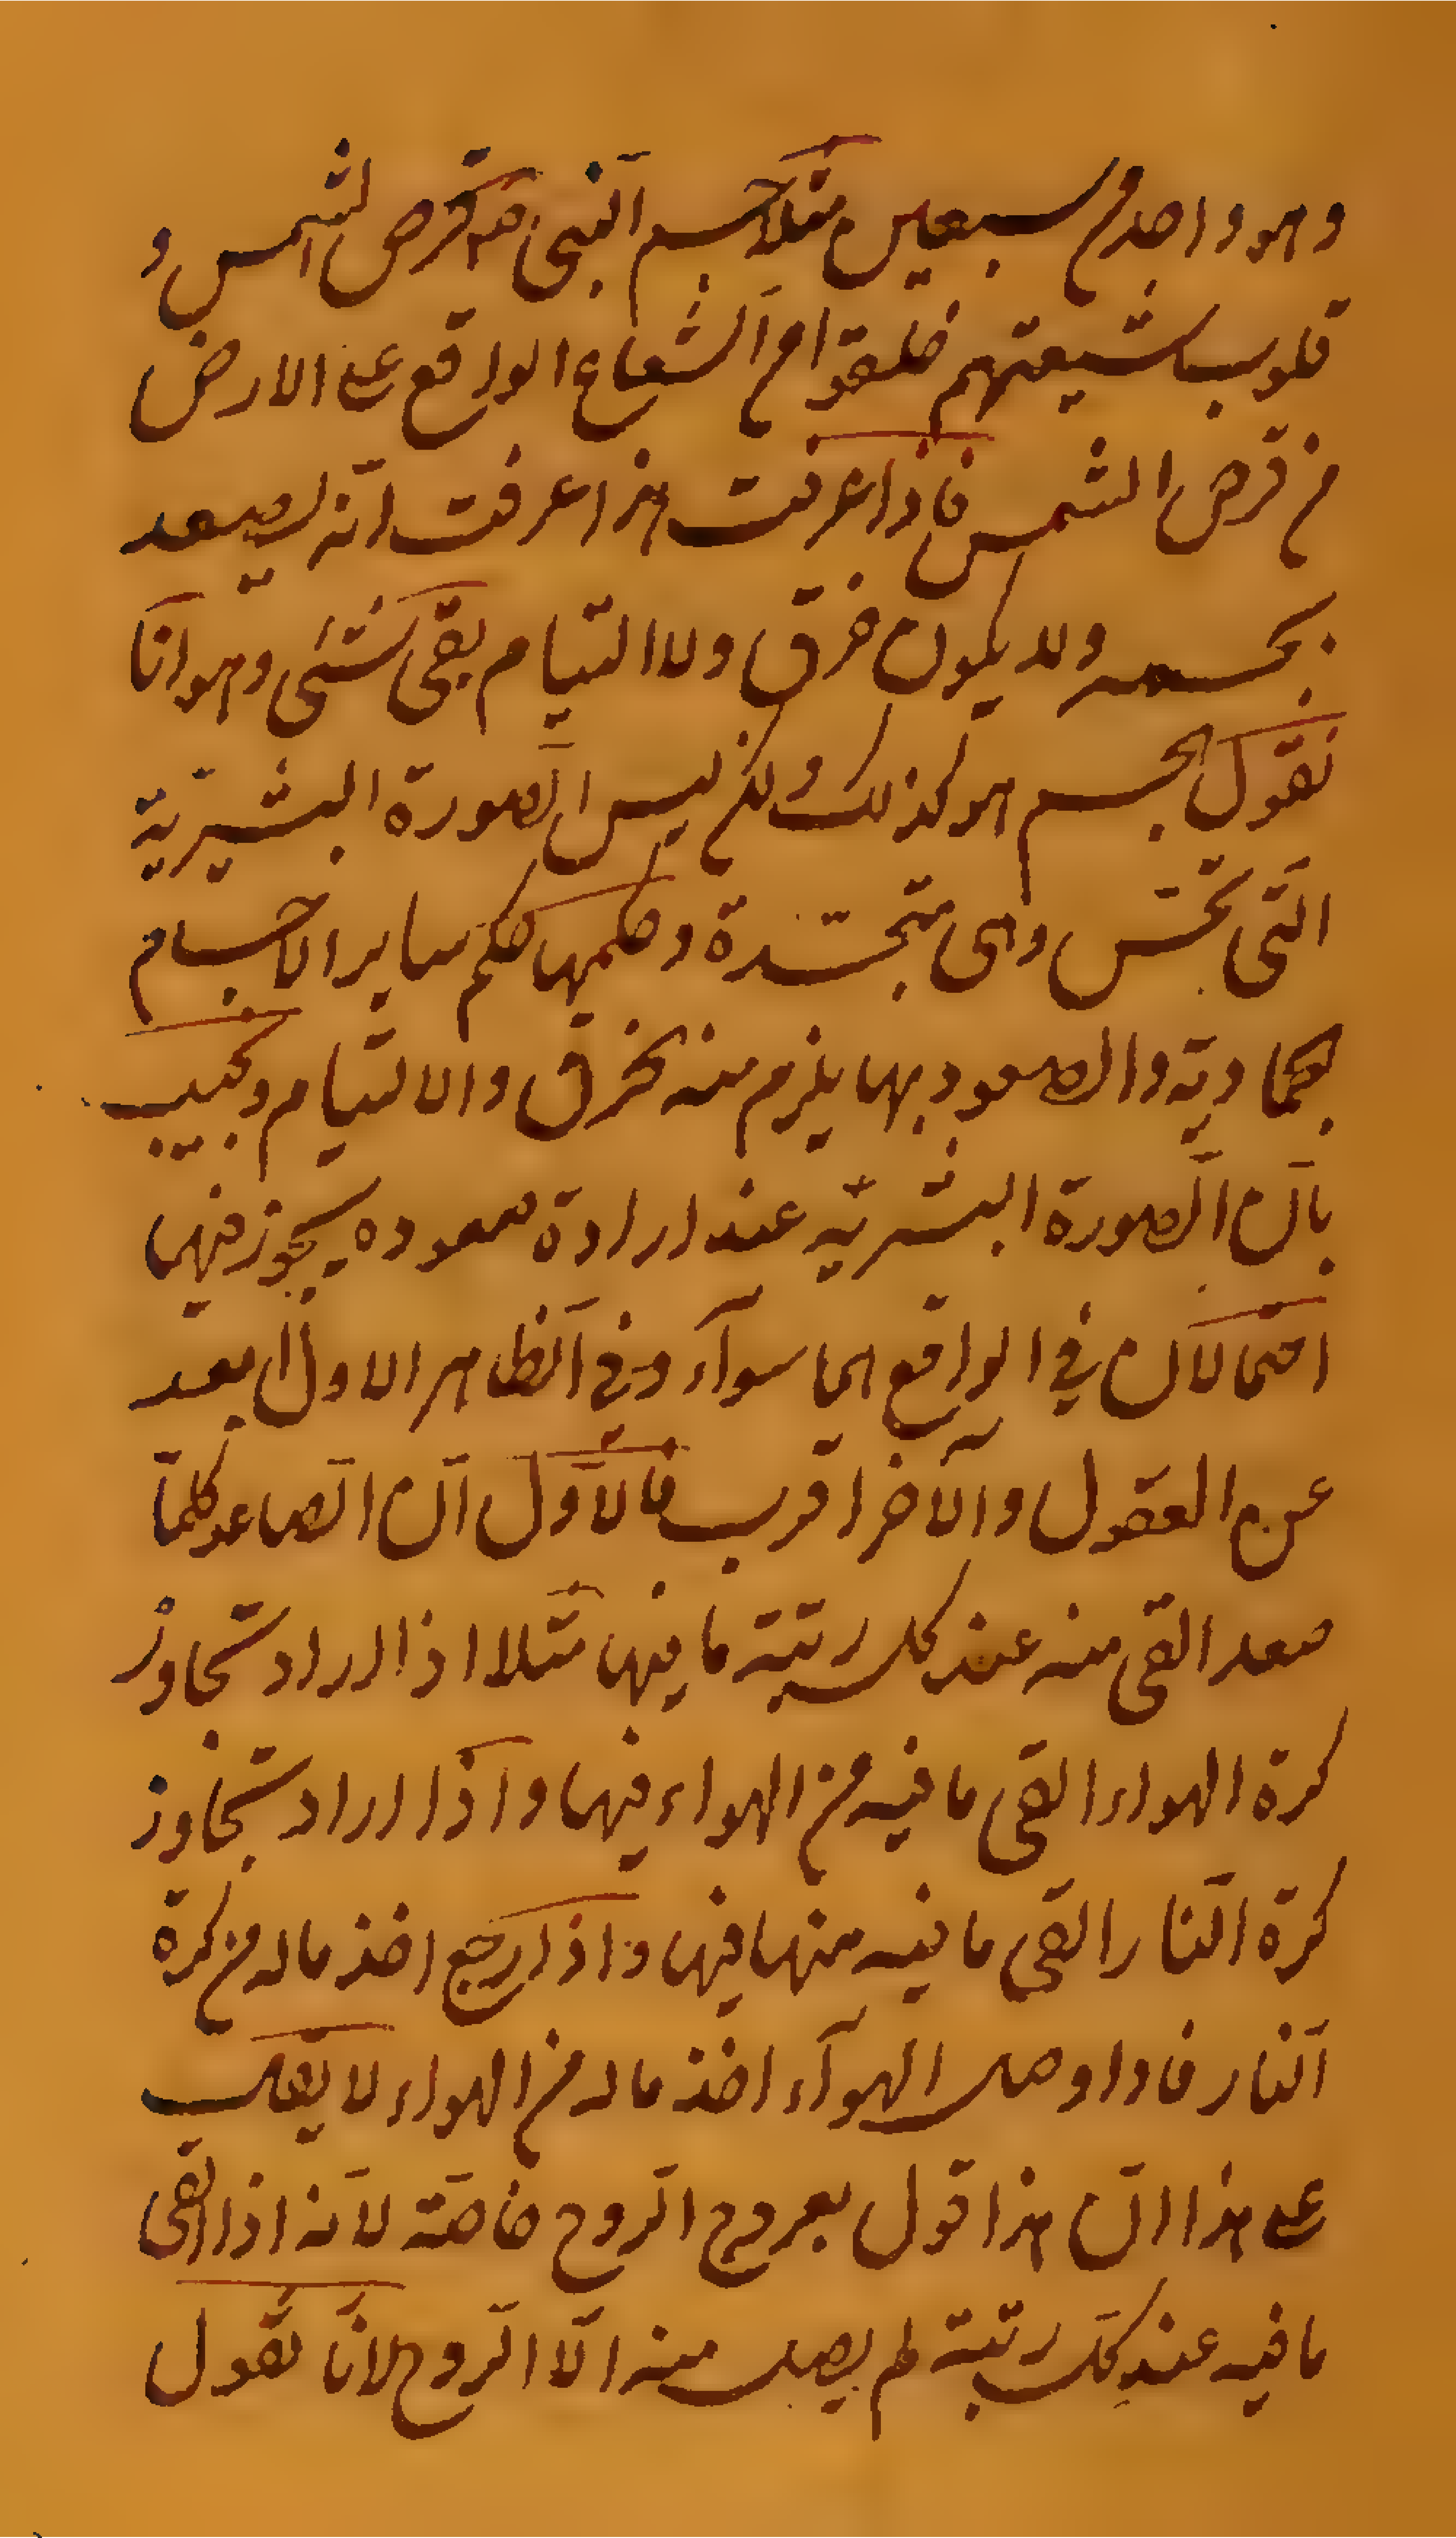 وهو واحد من سبعين مثلا جسم النبي ص كقرص الشمس و
قلوب شيعتهم خلقوا من الشعاع الواقع على الارض
من قرص الشمس فاذا عرفت هذا عرفت انّه يصعد
بجسمه ولا يكون خرق ولا التيام بقى شئ وهو انا
نقول الجسم هو كذلك ولكن ليس الصّورة البشريّة
الّتى تحسّ وهى متجسّدة وحكمها حكم ساير الاجسام
الجماديّة والصعود بها يلزم منه الخرق والالتيام ونجيب
بانّ الصّورة البشريّة عند ارادة صعوده يجوز فيها
احتمالان في الواقع هما سوآء وفي الظّاهر الاول ابعد
عن العقول والآخر اقرب فالاوّل انّ الصّاعد كلّما
صعد القى منه عند كل رتبة ما فيها مثلا اذا اراد تجاوز
كرة الهواء القى ما فيه من الهواء فيها واذا اراد تجاوز
كرة النّار القى ما فيه منها فيها واذا رجع اخذ ماله من كرة
النّار فاذا وصل الهوآء اخذ ماله من الهواء لا يقال
على هذا انّ هذا قول بعروج الرّوح خاصّة لانّه اذا القى
ما فيه عند كلّ رتبة لم يصل منه الّا الرّوح لانّا نقول